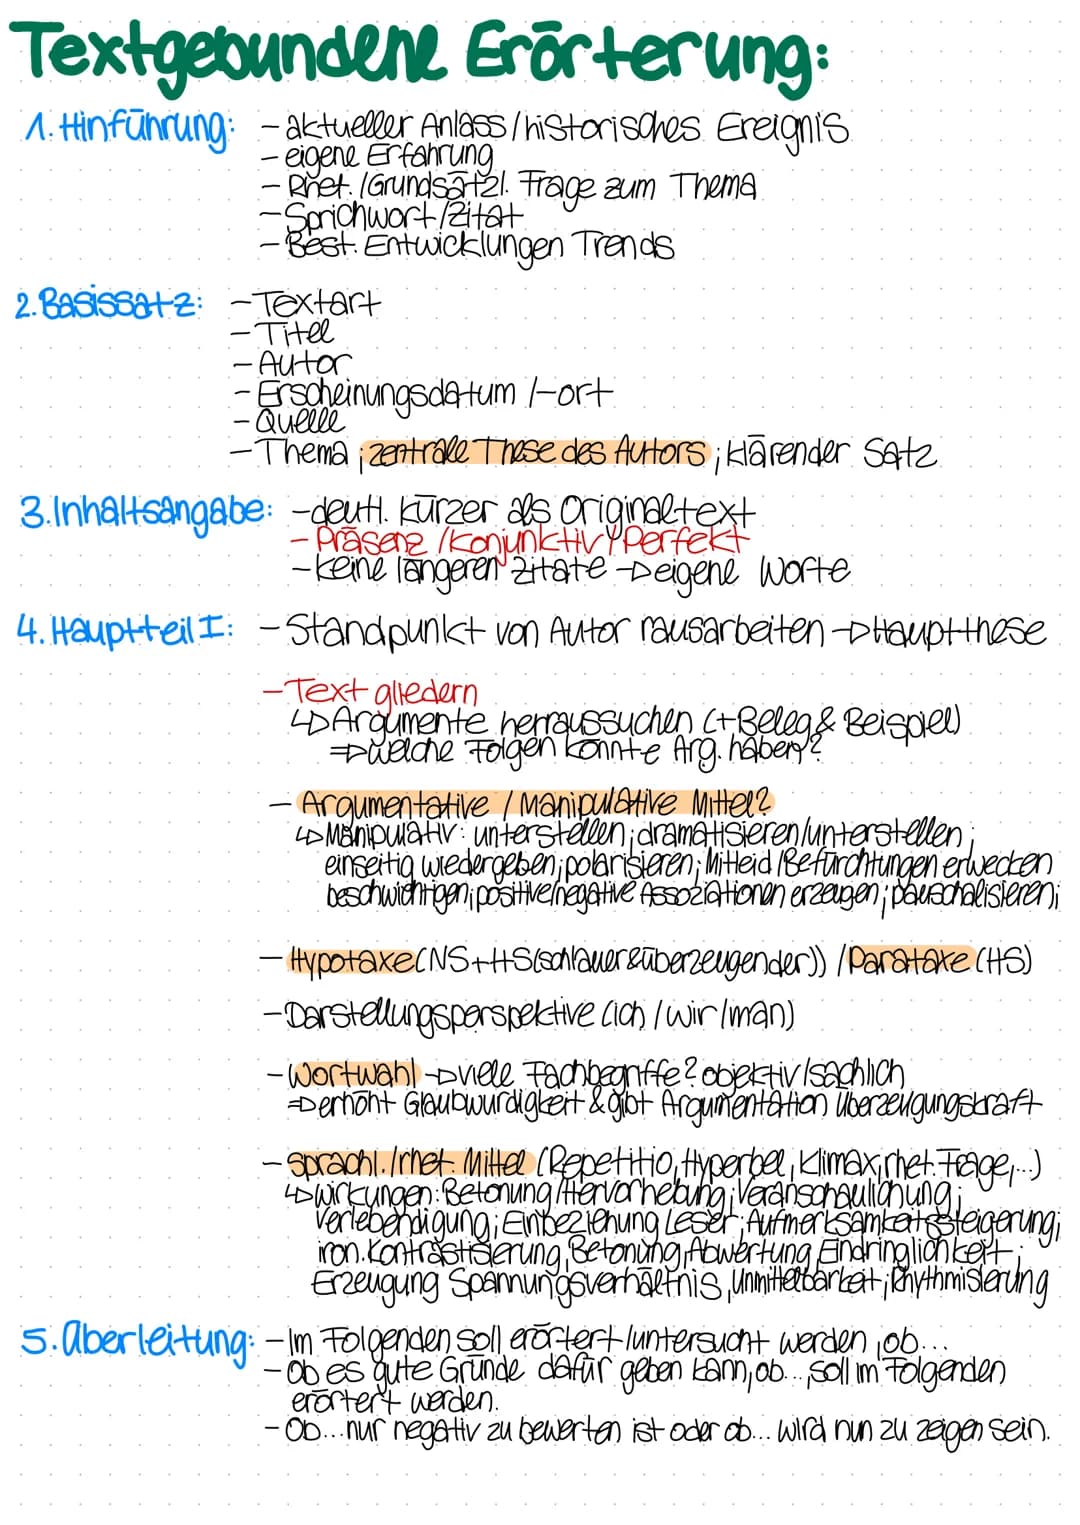 Textgebundene Erörterung:
1. Hinführung: - aktueller Anlass / historisches Ereignis
- eigene Erfahrung
- Rhet. / Grundsätzl. Frage zum Thema
- Sprichwort / Zitat
- Best. Entwicklungen Trends
2. Basissatz: - Textart
- Titel
- Autor
- Erscheinungsdatum / -ort
- Quelle
- Thema ; zentrale These des Autors ; klärender Satz
3. Inhaltsangabe: - deutl. kürzer als Originaltext
- Präsenz / Konjunktiv / Perfekt
- keine längeren Zitate → eigene Worte
4. Hauptteil I: - Standpunkt von Autor rausarbeiten → Hauptthese
- Text gliedern
↳ Argumente herraussuchen (+ Beleg & Beispiel)
⇒ welche Folgen könnte Arg. haben?
- Argumentative / Manipulative Mittel?
↳ Manipulativ: unterstellen ; dramatisieren/unterstellen ;
einseitig wiedergeben ; polarisieren ; Mitleid / Befürchtungen erwecken
beschwichtigen ; positive/negative Assoziationen erzeugen ; pauschalisieren ;
- Hypotaxe (NS + HS (schlauer & überzeugender)) / Parataxe (HS)
- Darstellungsperspektive (ich / wir / man)
- Wortwahl → viele Fachbegriffe? objektiv/sachlich
⇒ erhöht Glaubwürdigkeit & gibt Argumentation Überzeugungskraft
- sprachl. / rhet. Mittel (Repetitio, Hyperbel, Klimax, rhet. Frage, ...)
↳ Wirkungen: Betonung / Hervorhebung ; Veranschaulichung ;
Verlebendigung ; Einbeziehung Leser ; Aufmerksamkeitssteigerung ;
iron. Kontrastisierung, Betonung, Abwertung, Eindringlichkeit ;
Erzeugung Spannungsverhältnis, Unmittelbarkeit ; Rhythmisierung
5. Überleitung: - Im Folgenden soll erörtert / untersucht werden, ob...
- Ob es gute Gründe dafür geben kann, ob..., soll im Folgenden
erörtert werden.
- Ob... nur negativ zu bewerten ist oder ob... wird nun zu zeigen sein.